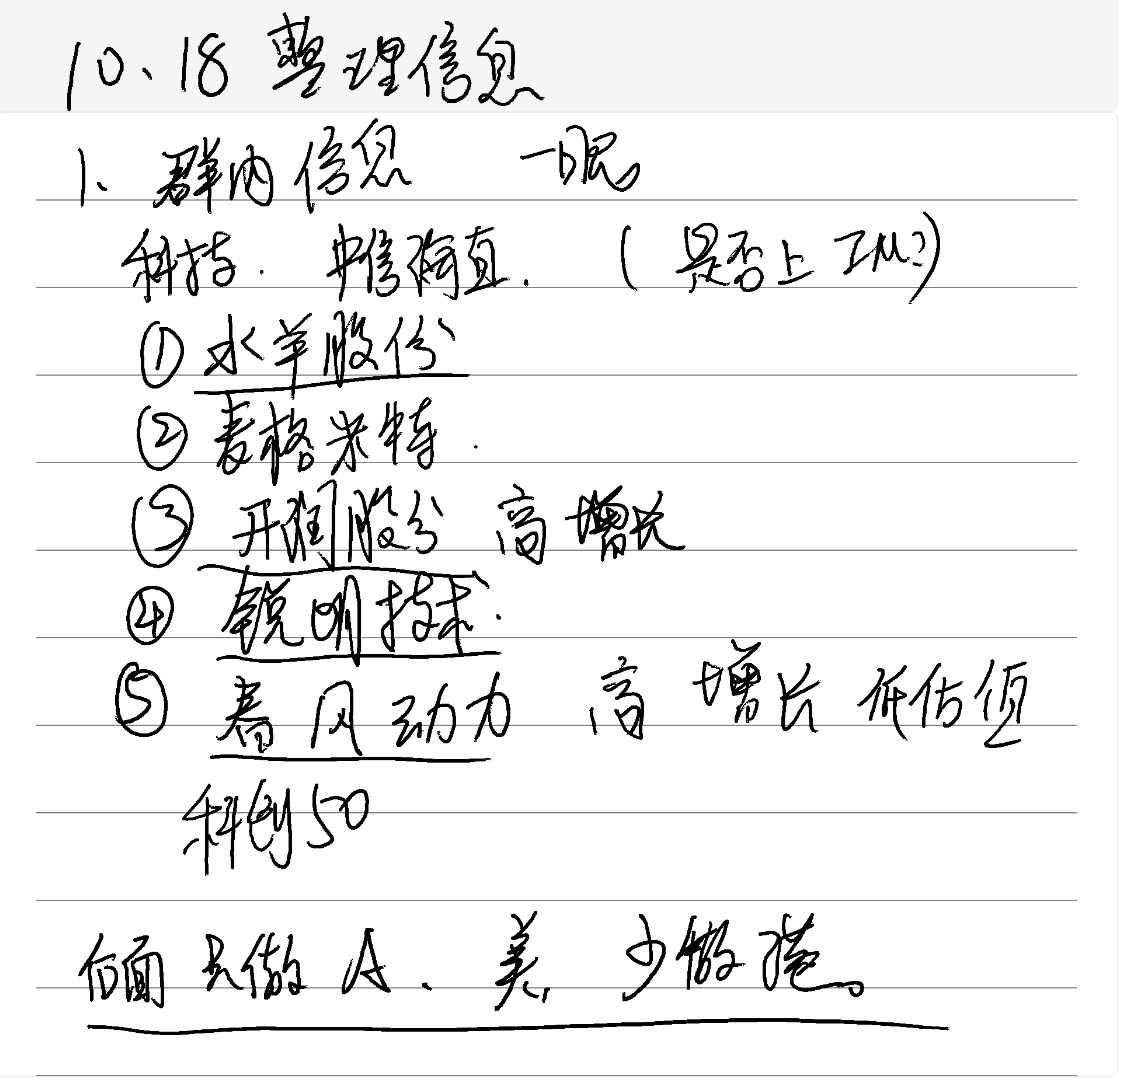 10、18 整理信息
1、群内信息 一眼。
科技. 中信海直. (是否上IM?)
① 水羊股份
② 麦格米特.
③ 开润股份 高增长
④ 锐明技术.
⑤ 春风动力 高增长 低估值
科创50
后面只做A、美,少做港。